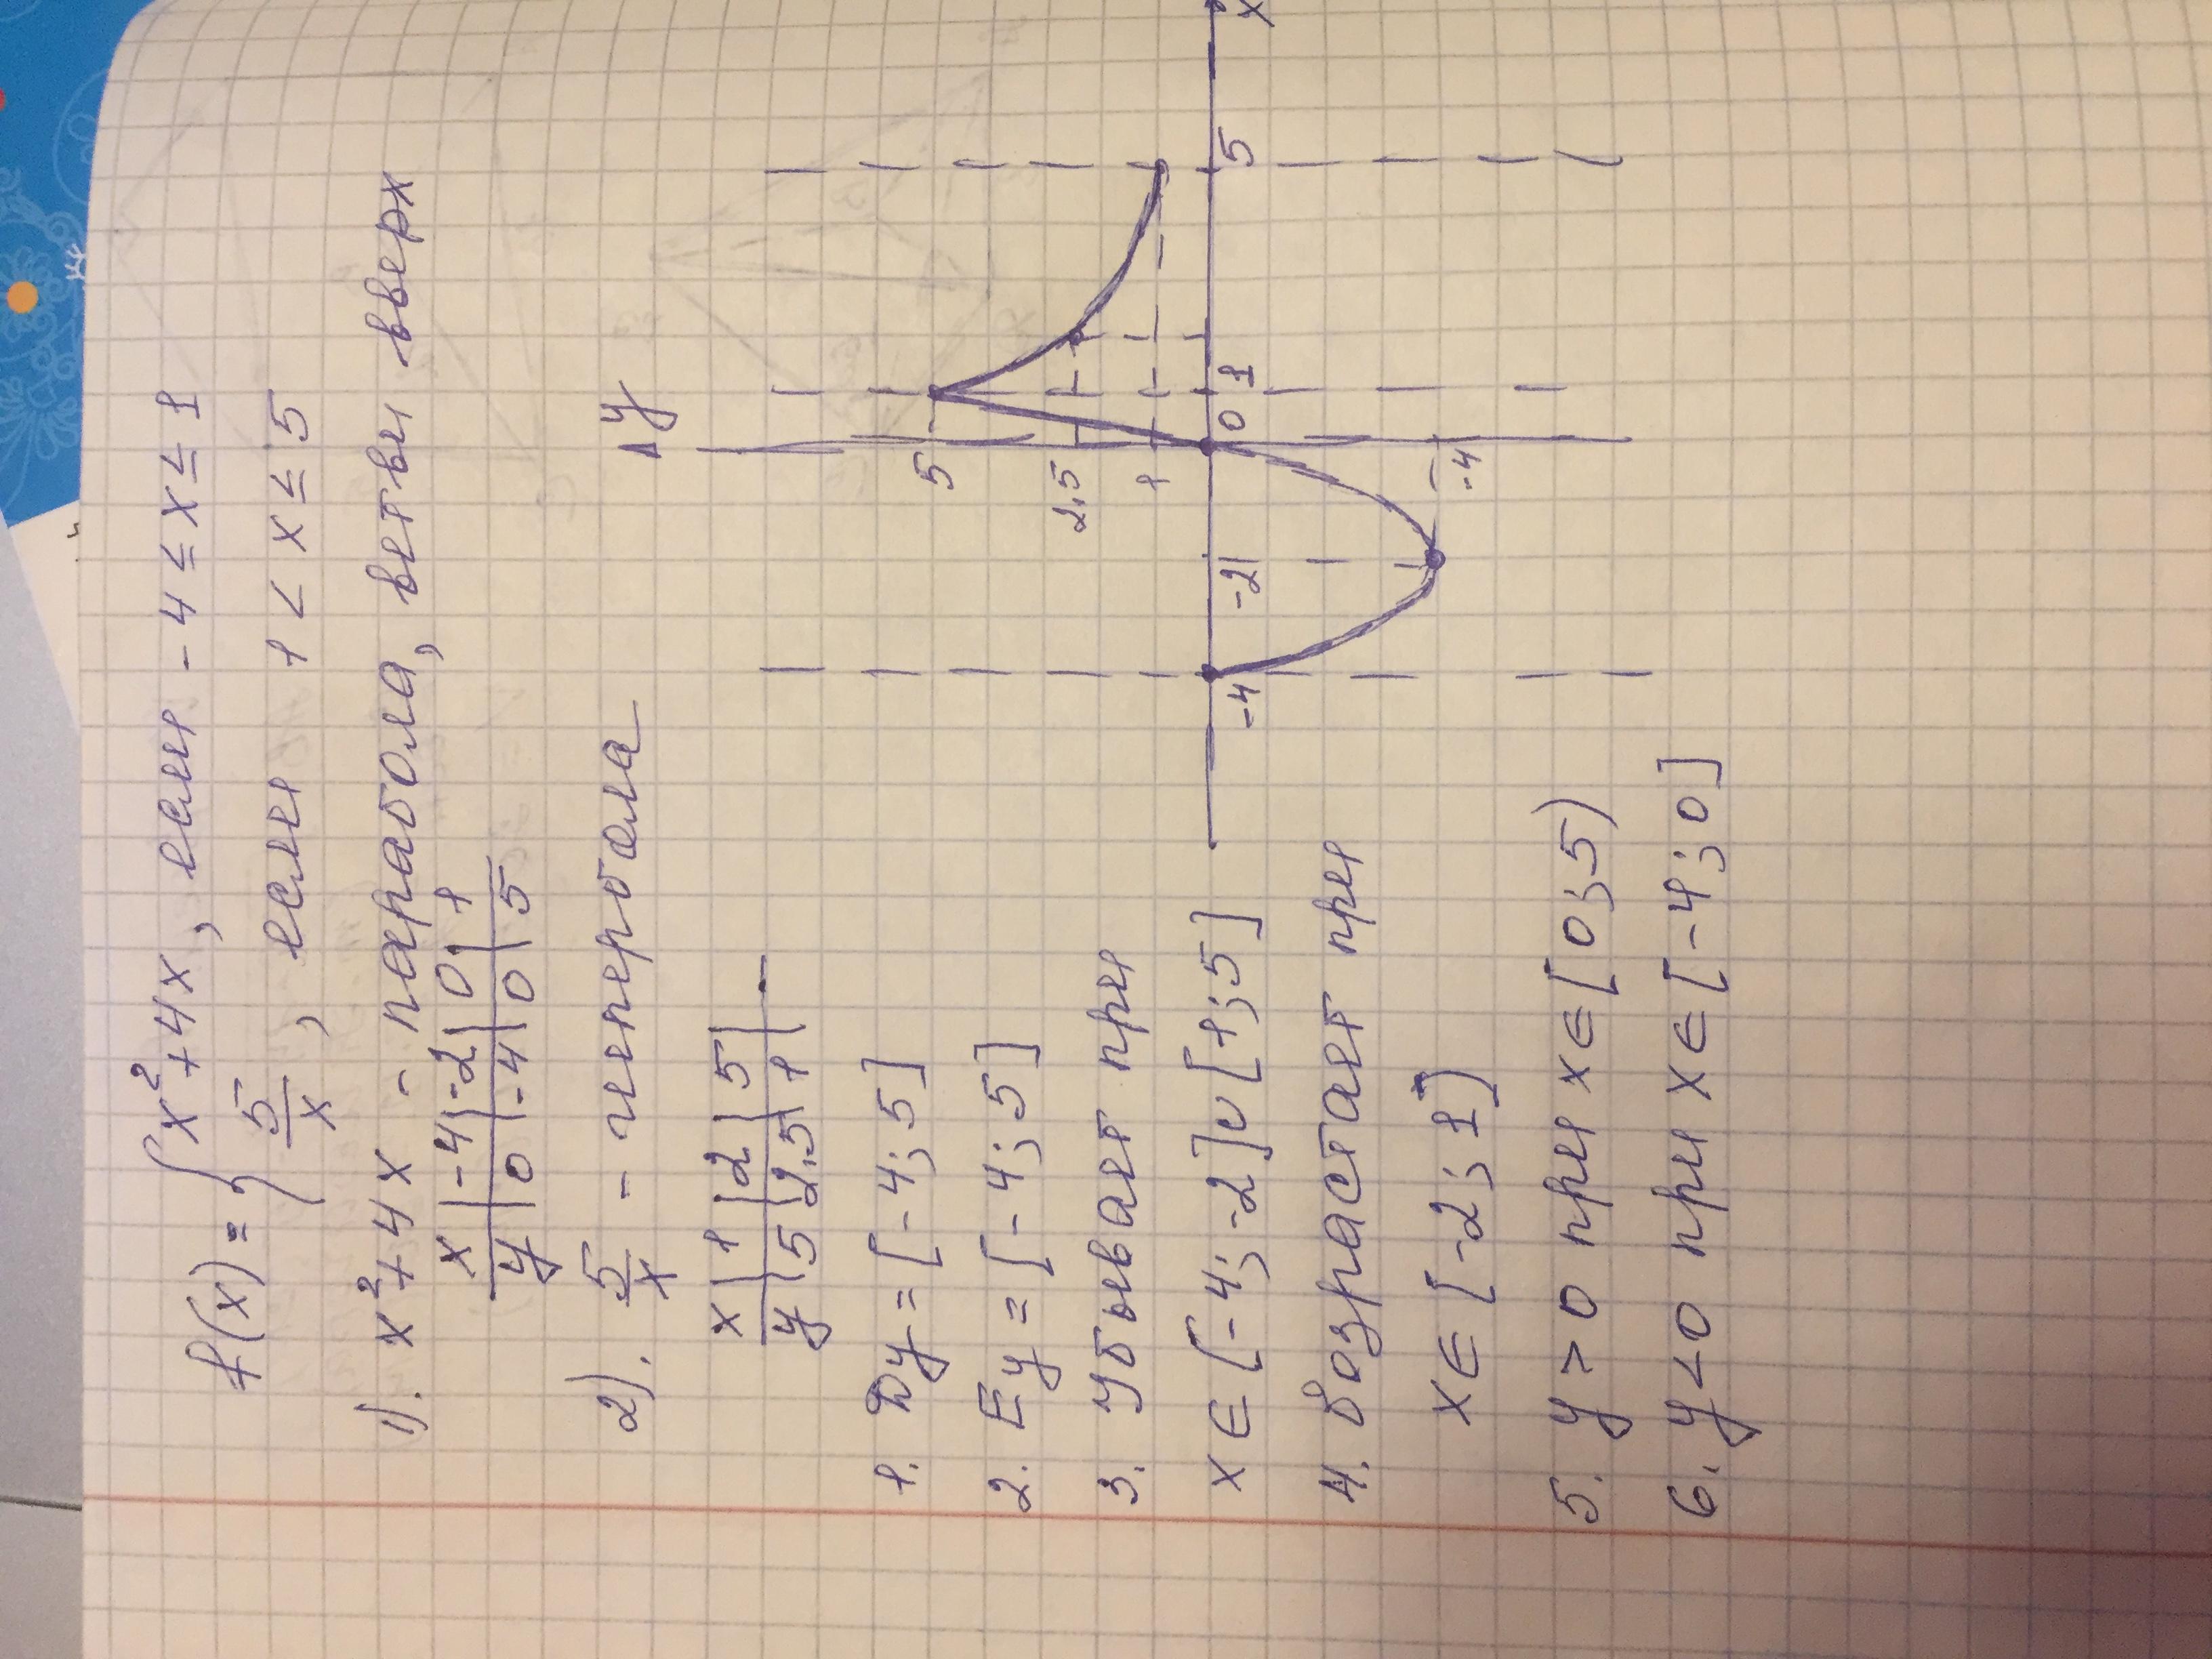 f(x) = { x²+4x, если -4 ≤ x ≤ 1
5/x, если 1 < x ≤ 5
1). x²+4x - парабола, ветви вверх
x | -4 | -2 | 0 | 1
y | 0 | -4 | 0 | 5
2). 5/x - гипербола
x | 1 | 2 | 5 |
y | 5 | 2,5 | 1 |
1. Dy = [-4; 5]
2. Ey = [-4; 5]
3. Убывает при
x ∈ [-4; -2] ∪ [1; 5]
4. Возрастает при
x ∈ [-2; 1)
5. y > 0 при x ∈ [0; 5)
6. y < 0 при x ∈ [-4; 0]
y
5
2,5
1
-4
-2
0
1
5
x
-4